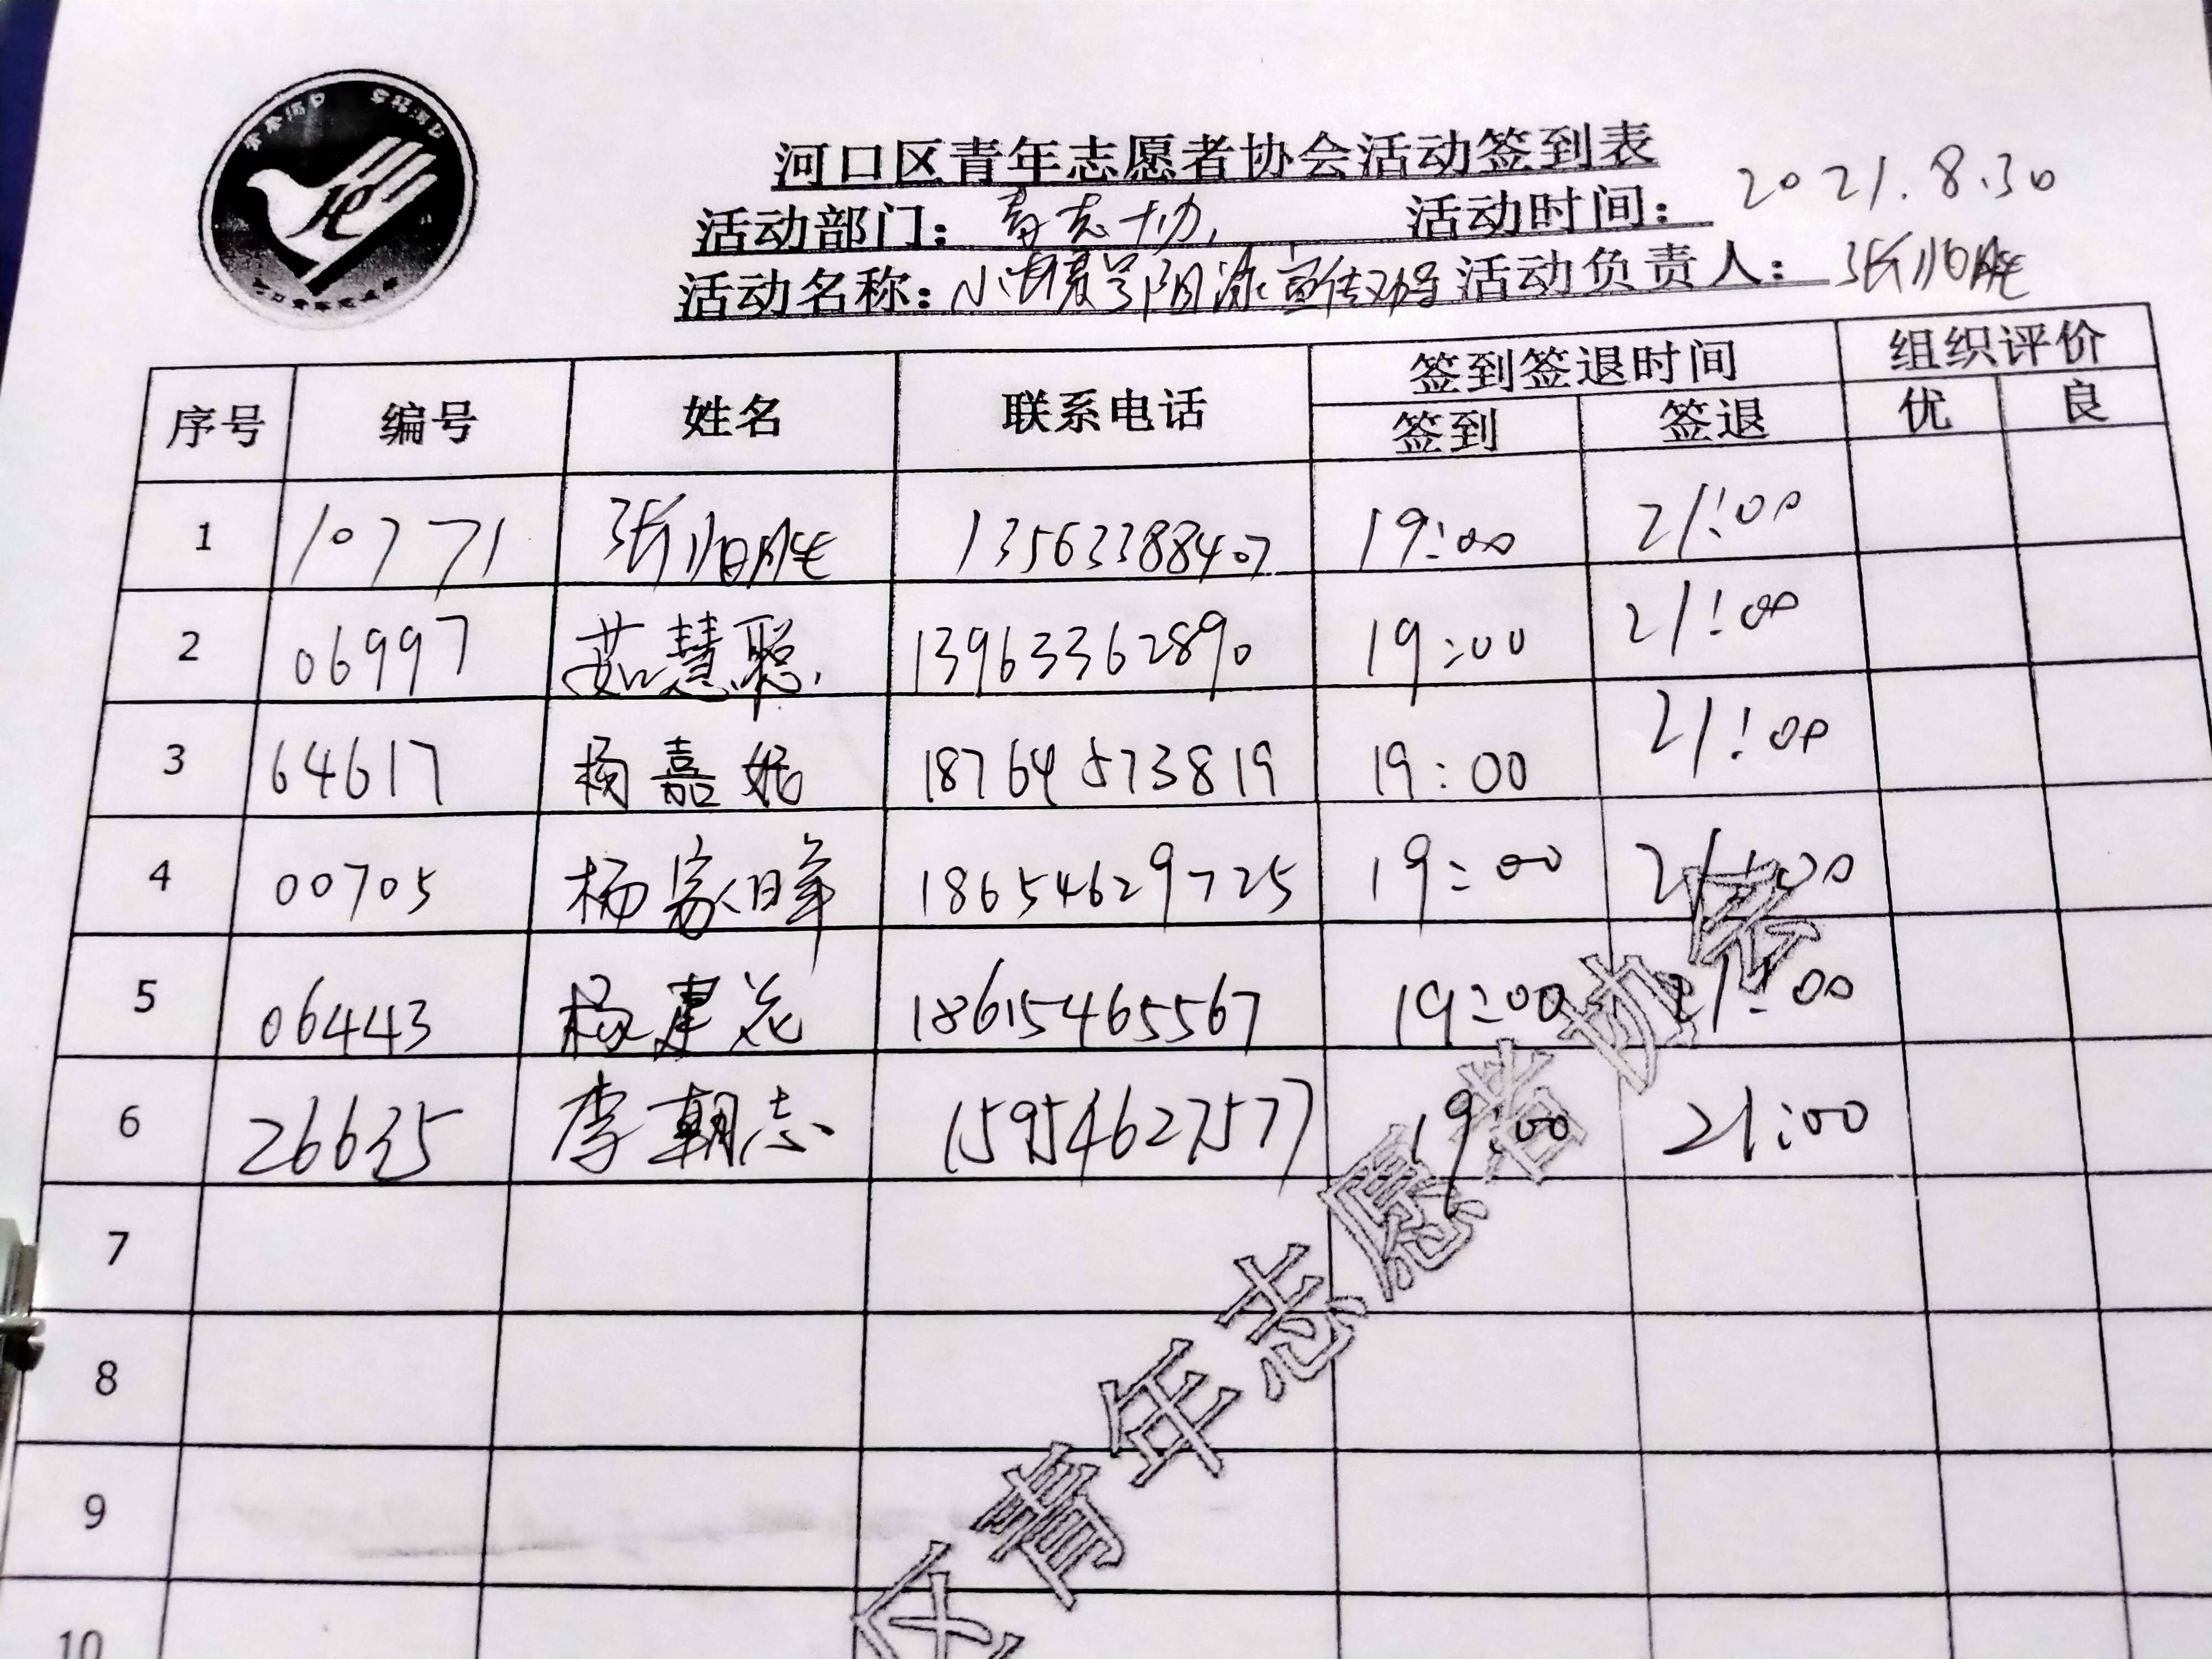 河口区青年志愿者协会活动签到表
活动部门：青志协 活动时间：2021.8.30
活动名称：小清夏号阴凉宣传劝导 活动负责人：张旭胜
序号 编号 姓名 联系电话 签到签退时间 组织评价
签到 签退 优 良
1 10771 张旭胜 13563388407 19:00 21:00
2 06997 茹慧聪 13963362890 19:00 21:00
3 64617 杨嘉妮 18764573819 19:00 21:00
4 00705 杨家峰 18654629725 19:00 21:00
5 06443 杨建花 18615465567 19:00 21:00
6 26635 李朝志 15954627577 19:00 21:00
7
8
9
10
青年志愿者协会